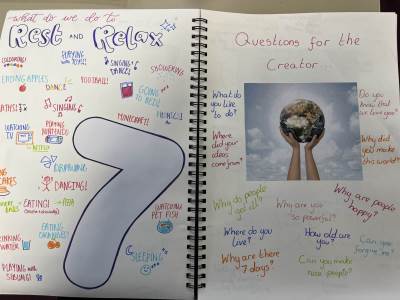 what do we do to
Rest AND Relax
COLOURING!
PLAYING with
TOYS!!
SINGING &
DANCE!
SHOWERING
EATING APPLES
DANCE
FOOTBALL!
GOING
TO BED!
SINGING
PICNICS!
MINECRAFT!
WATCHING
TV
PLAYING
NINTENDO!
NETFLIX!
DRAWING
DANCING!
CAKES
EATING!
PIZZA
WATCHING
PET FISH!
EATING
SLEEPING
DRINKING
WATER
PLAYING with
SIBLING!
Questions for the
Creator
What do
you like
to do?
Do you
know that
we love you?
Where
did your
ideas
come from?
Why did
you make
this world?
Why do people
get ill?
Why are you
so powerful?
Why are people
happy?
Where do you
live?
How old are
you?
Can you
forgive me?
Why are there
7 days?
Can you make
more people?
7